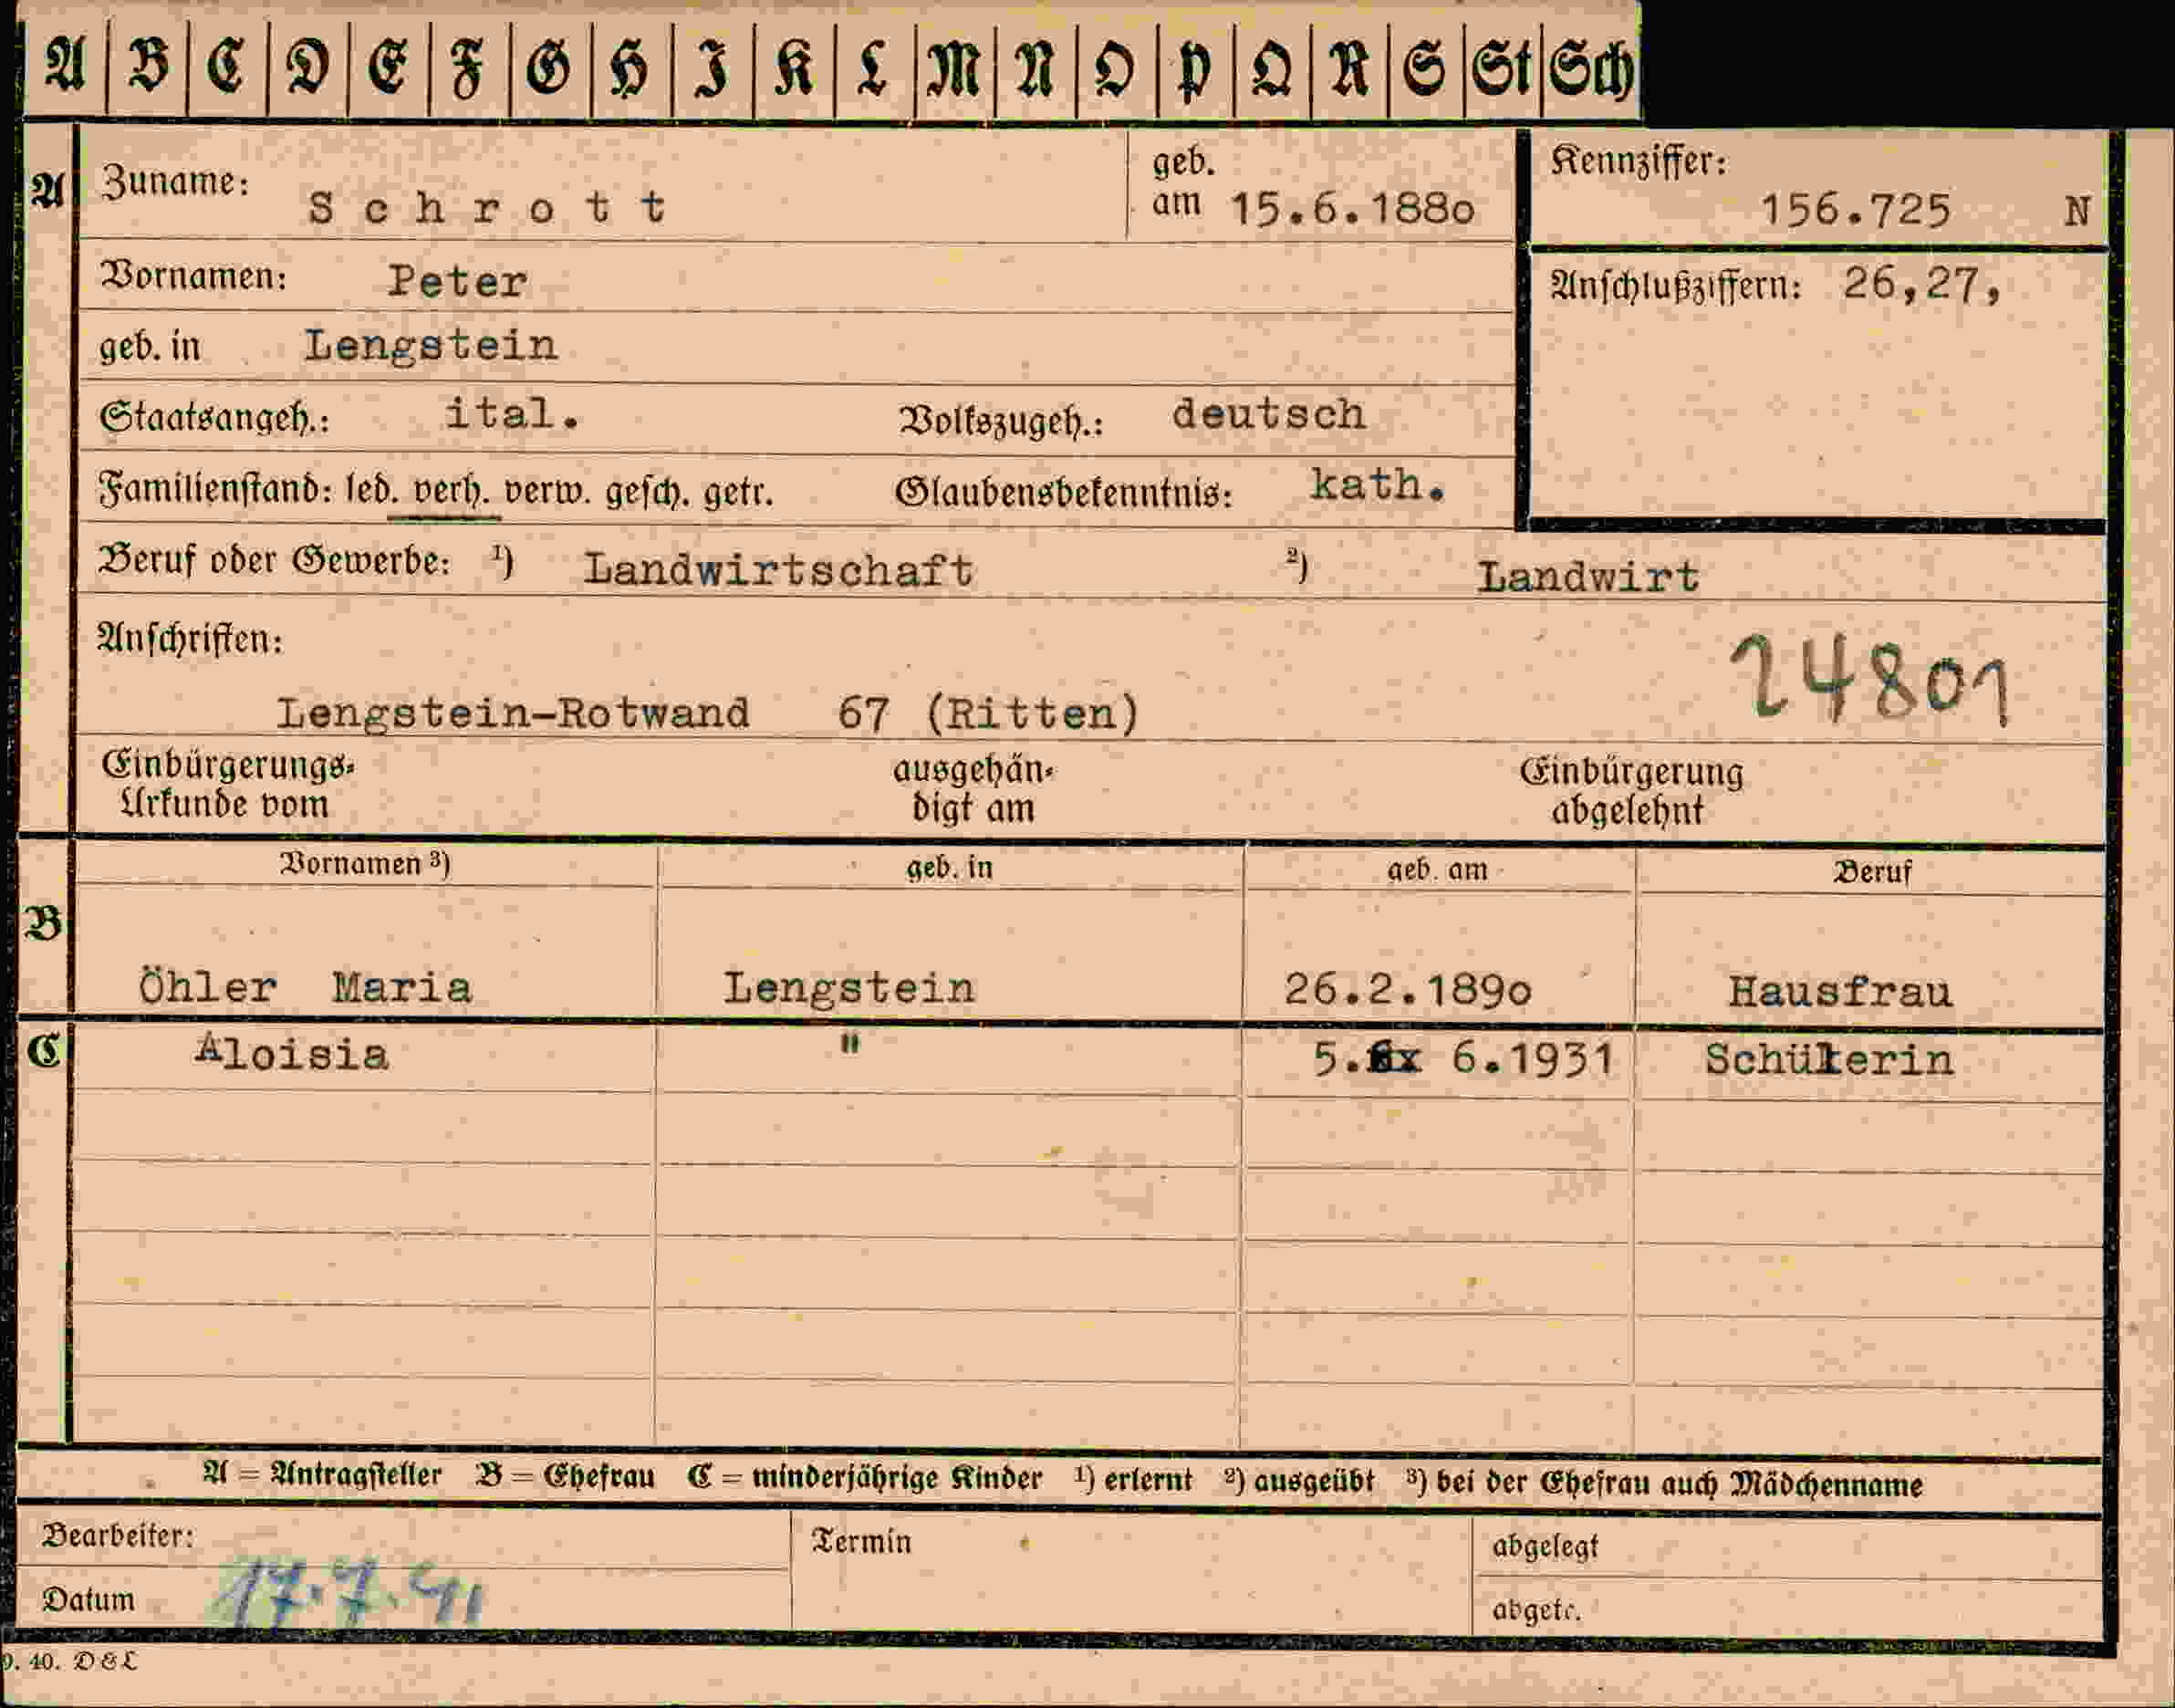 A B C D E F G H I K L M N O P Q R S St Sch
A Zuname: Schrott geb. am 15.6.1880 Kennziffer: 156.725 N
Vornamen: Peter Anschlußziffern: 26,27,
geb. in Lengstein
Staatsangeh.: ital. Volkszugeh.: deutsch
Familienstand: led. verh. verw. gesch. getr. Glaubensbekenntnis: kath.
Beruf oder Gewerbe: 1) Landwirtschaft 2) Landwirt
Anschriften:
24801
Lengstein-Rotwand 67 (Ritten)
Einbürgerungs- ausgehän- Einbürgerung
Urkunde vom digt am abgelehnt
Vornamen 3) geb. in geb. am Beruf
B
Öhler Maria Lengstein 26.2.1890 Hausfrau
C Aloisia " 5. 6.1931 Schülerin
A = Antragsteller B = Ehefrau C = minderjährige Kinder 1) erlernt 2) ausgeübt 3) bei der Ehefrau auch Mädchenname
Bearbeiter: Termin abgelegt
Datum 17.7.41 abgetr.
9. 40. D&L